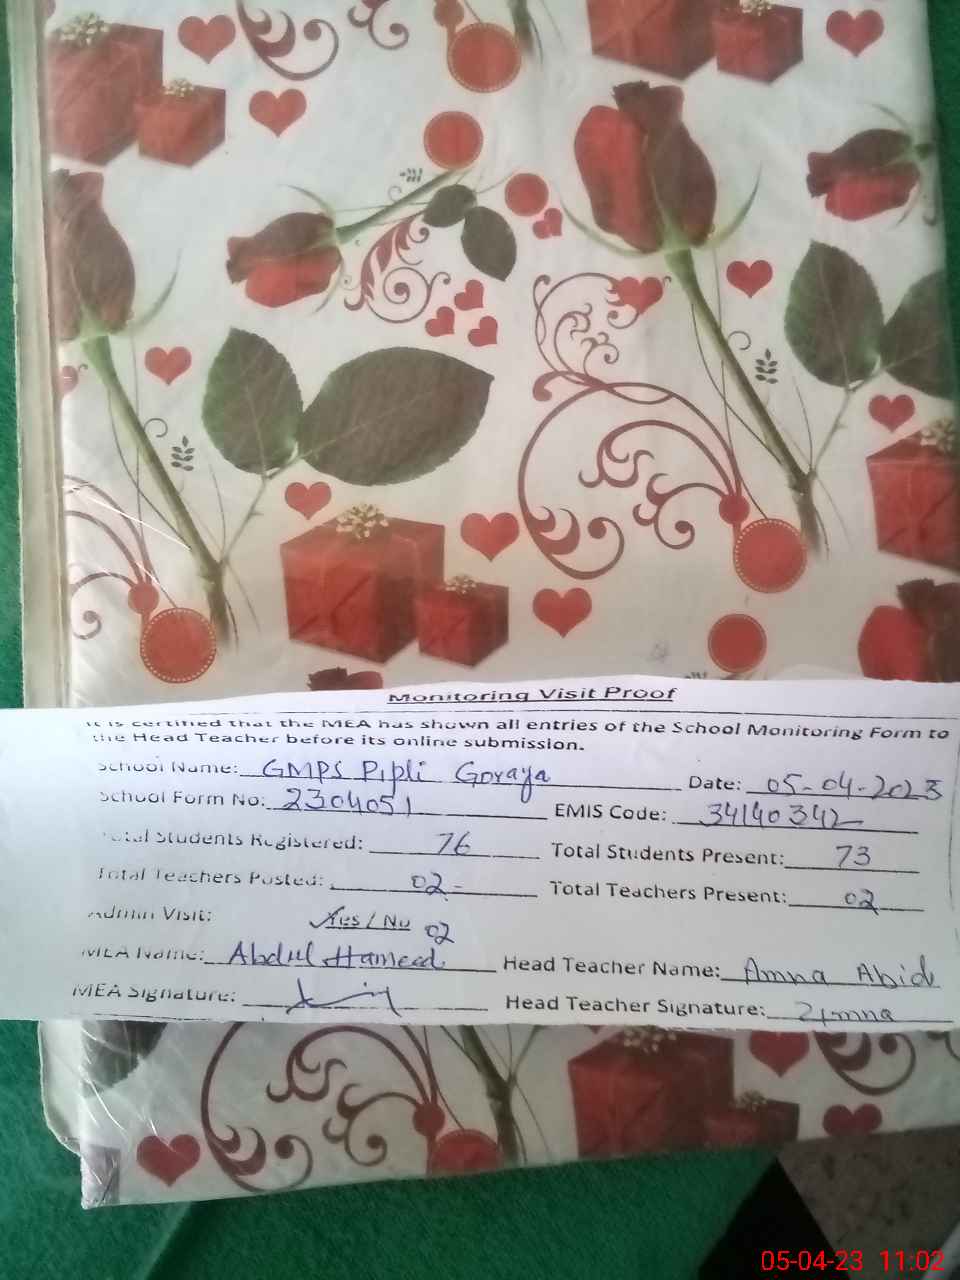 Monitoring Visit Proof
It is certified that the MEA has shown all entries of the School Monitoring Form to
the Head Teacher before its online submission.
School Name: GMPS Pipli Goraya Date: 05-04-2023
School Form No: 2304051 EMIS Code: 34140342
Total Students Registered: 76 Total Students Present: 73
Total Teachers Posted: 02 Total Teachers Present: 02
Admin Visit: Yes / No 02
MEA Name: Abdul Hameed Head Teacher Name: Amna Abid
MEA Signature: Head Teacher Signature: Amna
05-04-23 11:02